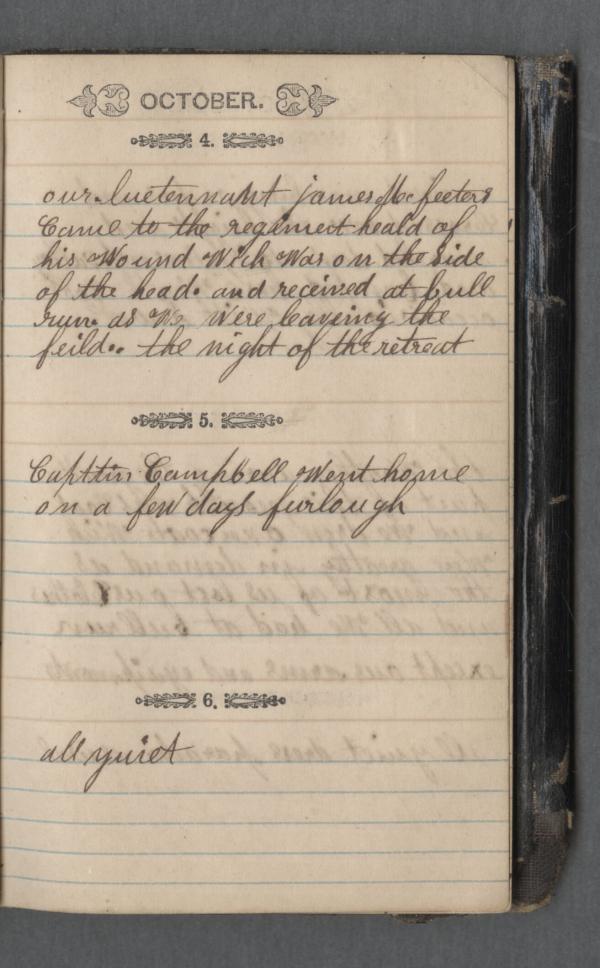 OCTOBER.
4.
our lieutennant james Mc feeters
Came to the regiment heald of
his Wound Wich Was on the side
of the head. and received at bull
run. as We Were leaveing the
feild.. the night of the retreat
5.
Capttin Campbell Went home
on a few days furlough
6.
all quiet